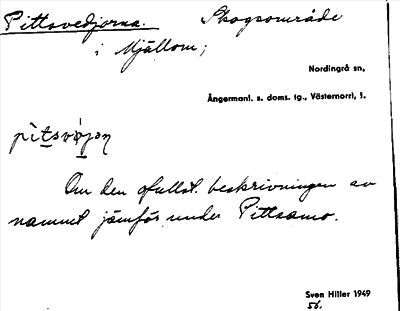 Pittsvedjorna. Skogsområde
i Mjällom;
Nordingrå sn,
Ångermanl. s. doms. tg., Västernorrl, l.
pìtsvə̀jən
Om den ofullst. beskrivningen av
namnet jämför under Pittsamo.
Sven Hiller 1949
56.